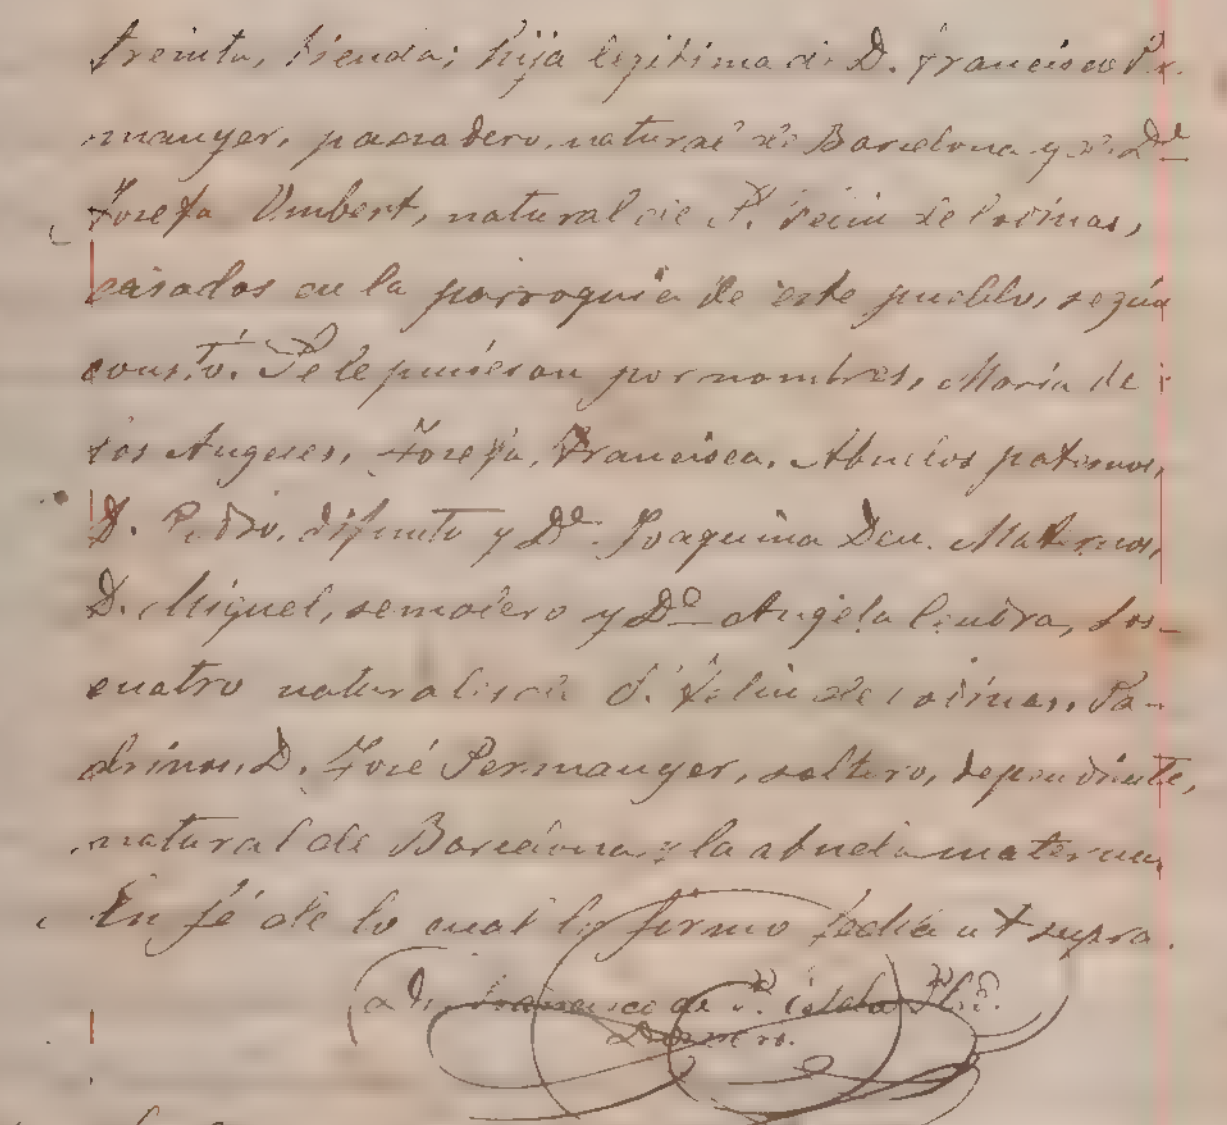 treinta, tienda; hija legitima de D. Francisco Per
manyer, panadero, natural de Barcelona y de Dª
Josefa Umbert, natural de S. Feliu de Codinas,
casados en la parroquia de este pueblo, según
constó. Se le pusieron por nombres, María de
los Angeles, Josefa, Francisca. Abuelos paternos,
D. Pedro, difunto y Dª Joaquina Deu. Maternos,
D. Miguel, semolero y Dª Angela Cendra, los
cuatro naturales de S. Feliu de Codinas. Pa-
drinos, D. José Permanyer, soltero, dependiente,
natural de Barcelona y la abuela materna.
En fé de lo cual lo firmo fecha ut supra.
Francisco de P. Esteba Pbro.